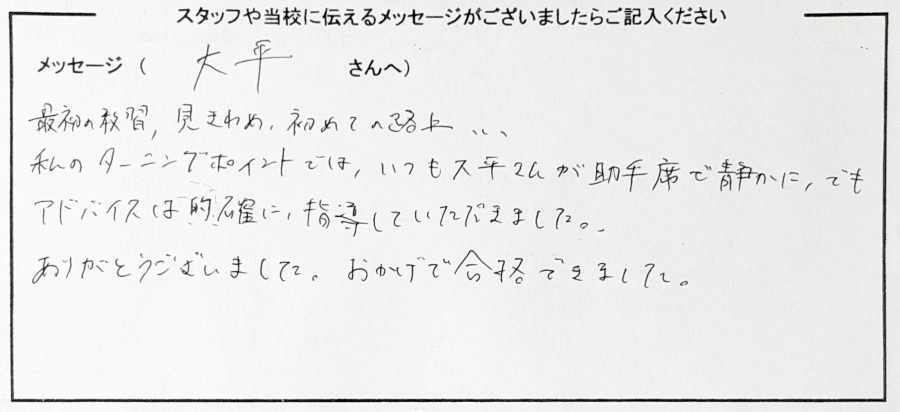 スタッフや当校に伝えるメッセージがございましたらご記入ください
メッセージ ( 大平 さんへ)
最初の教習, 見きわめ, 初めての路上...
私のターニングポイントでは, いつも大平さんが助手席で静かに, でも
アドバイスは的確に, 指導していただきました。
ありがとうございました。おかげで合格できました。